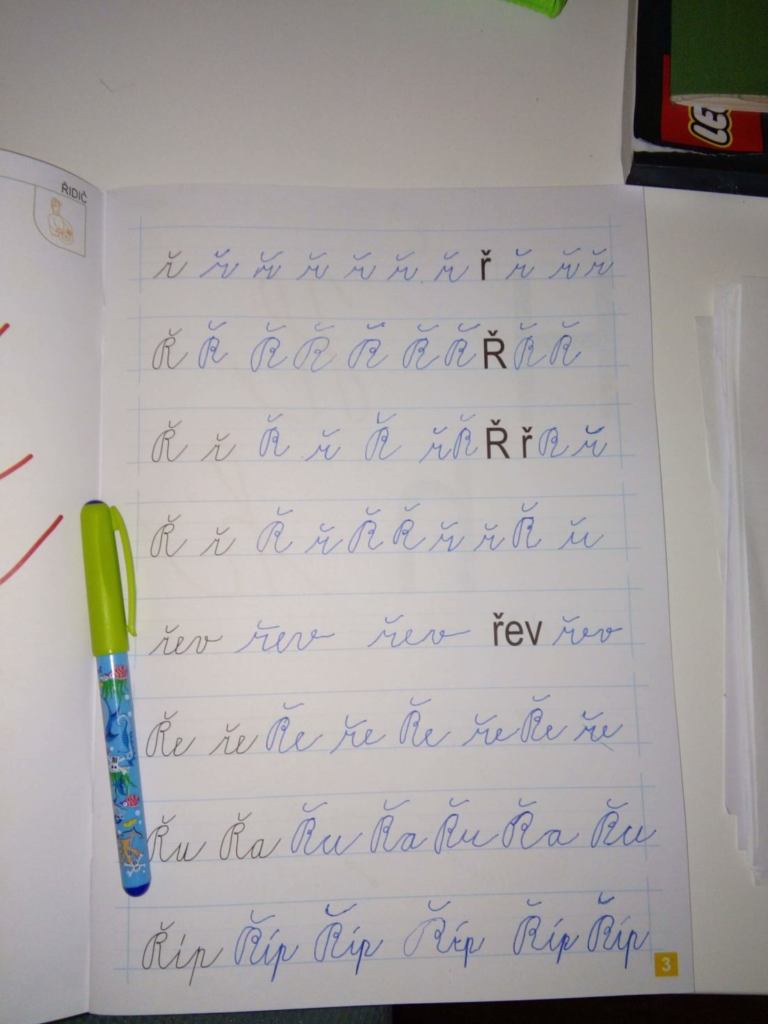 ŘIDIČ
ř ř ř ř ř ř ř ř ř ř ř
Ř Ř Ř Ř Ř Ř Ř Ř Ř Ř
Ř ř Ř ř Ř ř Ř Ř ř Ř ř
Ř ř Ř ř Ř Ř ř ř Ř ř
řev řev řev řev řev
Ře ře Ře ře Ře ře Ře ře
Řu Řa Řu Řa Řu Řa Řu
Říp Říp Říp Říp Říp Říp
3